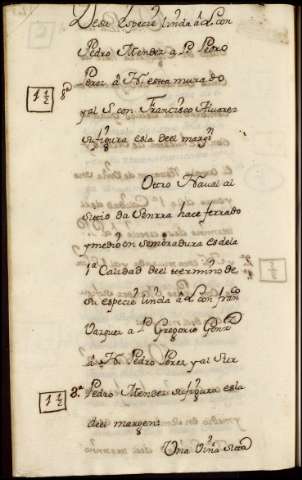 Desu especie linda al L. con
Pedro Mendez a P. Pedro
Perez a N. esta murado
y al S. con Francisco Alvarez
su figura es la del margn
1 1/2
Otro Naval al
sitio da Senrra hace ferrado
y medio en sembradura es de la
1a Calidad del termino de
su especie linda al L. con fran.co
Vazquez a P. Gregorio Gonz
a N. Pedro Perez y al Sur
1 1/2 3.a Pedro Mendez su figura es la
del margen
Una Viña